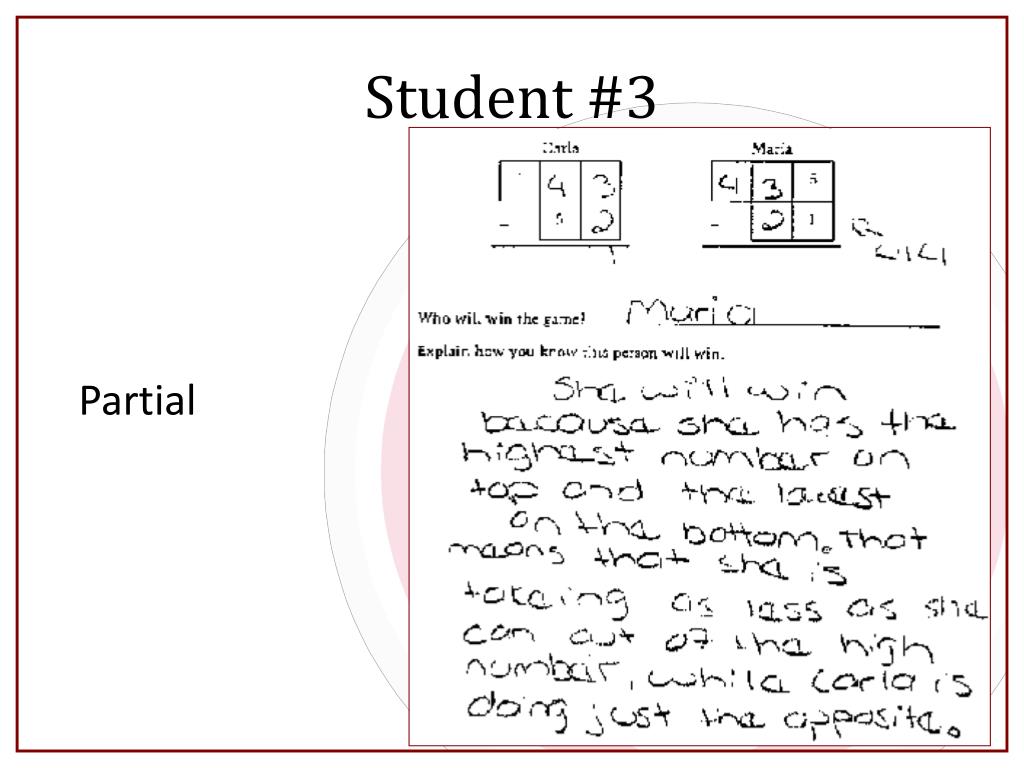 Student #3
Partial
Carla Maria
4 3 4 3 5
- 5 2 - 2 1
414
Who will win the game? Maria
Explain how you know this person will win.
She will win
because she has the
highest number on
top and the lowest
on the bottom. That
means that she is
takeing as less as she
can out of the high
number, while Carla is
doing just the opposite.